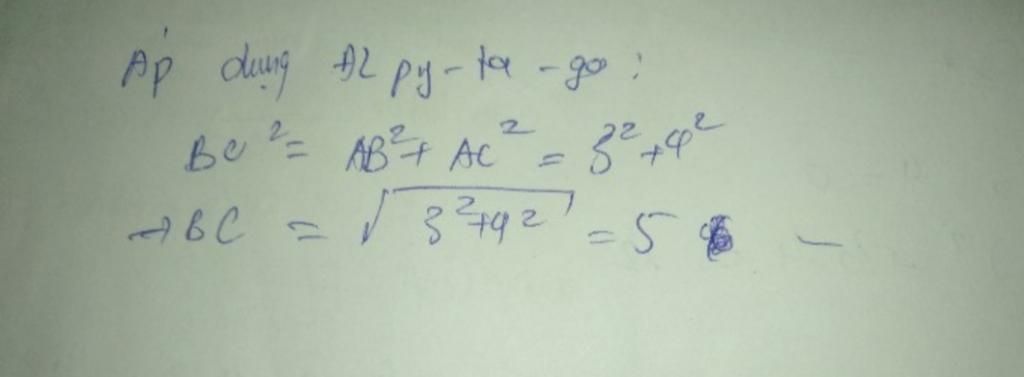 Áp dụng ĐL py-ta-go:
BC² = AB² + AC² = 3² + 4²
→ BC = √(3²+4²) = 5